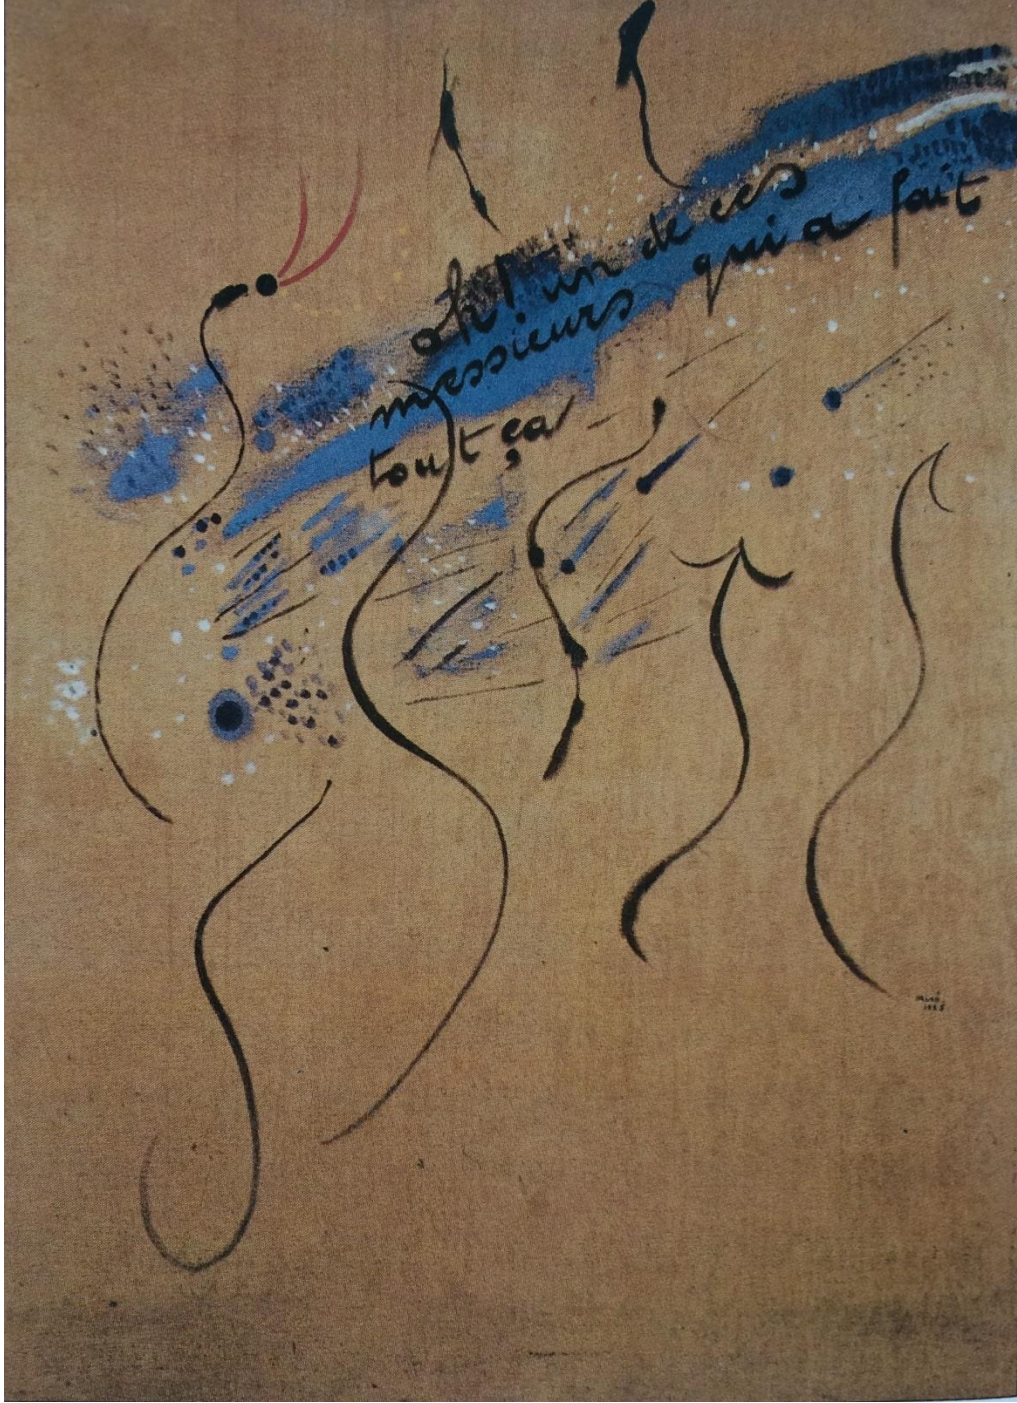 oh! un de ces
messieurs qui a fait
tout ça
miró.
1925